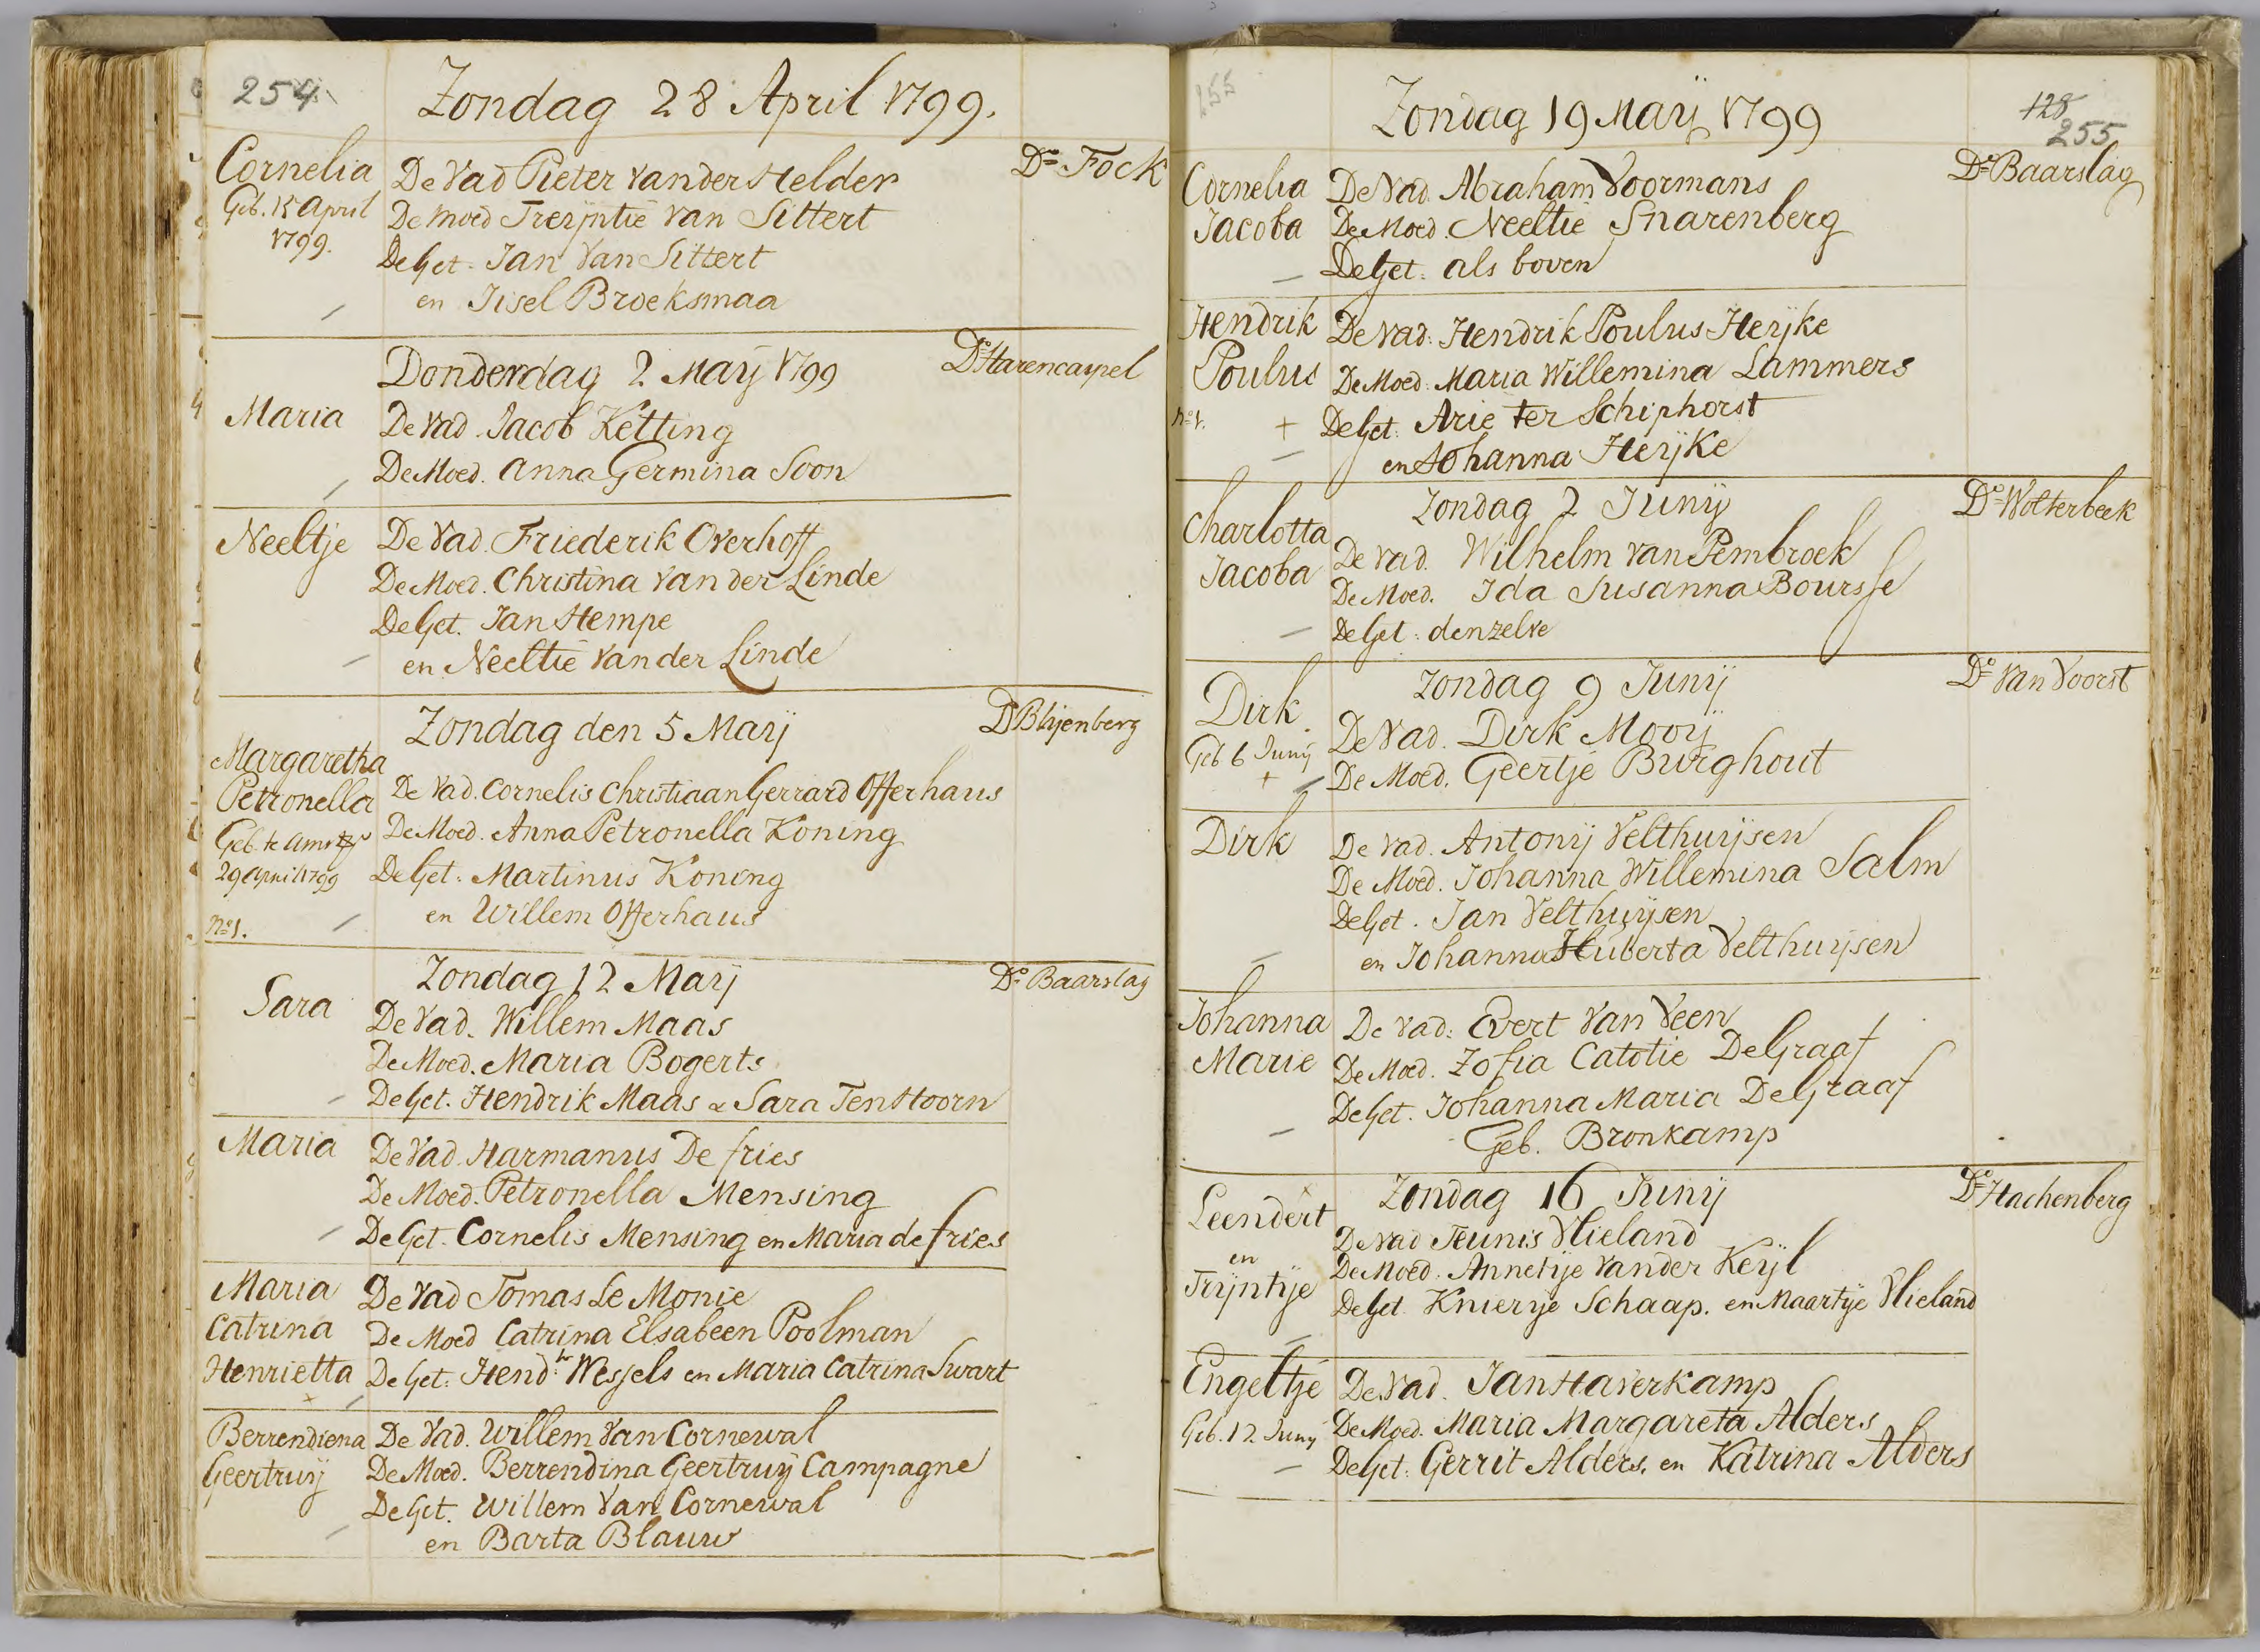 254
Zondag 28 April 1799.
Cornelia
Geb. 15 April
1799.
De Vad Pieter van der Helder
De Moed Treijntie van Sittert
De Get. Jan van Sittert
en Jisel Broeksmaa
Ds Fock
Donderdag 2 Maij 1799
Ds Harencarpel
Maria
De Vad. Jacob Ketting
De Moed. Anna Germina Soon
Neeltje
De Vad. Friederik Overhoff
De Moed. Christina van der Linde
De Get. Jan Hempe
en Neeltie van der Linde
Zondag den 5 Maij
Ds Blijenberg
Margaretha
Petronella
Geb. te
29 April 1799
No 1.
De Vad. Cornelis Christiaan Gerrard Offerhaus
De Moed. Anna Petronella Koning
De Get. Martinus Koning
en Willem Offerhaus
Zondag 12 Maij
Ds Baarslag
Sara
De Vad. Willem Maas
De Moed. Maria Bogerts
De Get. Hendrik Maas & Sara Tenhoorn
Maria
De Vad. Harmanus De fries
De Moed. Petronella Mensing
De Get. Cornelis Mensing en Maria de fries
Maria
Catrina
Henrietta
De Vad Tomas Le Monie
De Moed Catrina Elsabeen Poolman
De Get. Hendk Wessels en Maria Catrina Swart
Berrendiena
Geertruij
De Vad. Willem van Cornewal
De Moed. Berrendina Geertruij Campagne
De Get. Willem van Cornewal
en Barta Blauw
255
128
255
Zondag 19 Maij 1799
Ds Baarslag
Cornelia
Jacoba
De Vad. Abraham Voormans
De Moed. Neeltie Snarenberg
De Get. als boven
Hendrik
Poulus
No 1.
De Vad. Hendrik Poulus Heijke
De Moed. Maria Willemina Lammers
De Get. Arie ter Schiphorst
en Johanna Heijke
Zondag 2 Junij
Ds Wolterbeek
Charlotta
Jacoba
De Vad. Wilhelm van Pembroek
De Moed. Ida Susanna Boursse
De Get. denzelve
Zondag 9 Junij
Ds van Voorst
Dirk
Geb 6 Junij
De Vad. Dirk Mooij
De Moed. Geertje Burghout
Dirk
De Vad. Antonij Velthuijsen
De Moed. Johanna Willemina Salm
De Get. Jan Velthuijsen
en Johanna Huberta Velthuijsen
Johanna
Marie
De Vad. Evert van Veen
De Moed. Zofia Catotie De Graaf
De Get. Johanna Maria De Graaf
Geb. Bronkamp
Zondag 16 Junij
Ds Hachenberg
Leendert
en
Trijntije
De Vad Teunis Vlieland
De Moed. Annetije van der Keijl
De Get. Knierije Schaap. en Maartije Vlieland
Engeltje
Geb. 12. Junij
De Vad. Jan Haverkamp
De Moed. Maria Margareta Alders
De Get. Gerrit Alders. en Katrina Alders